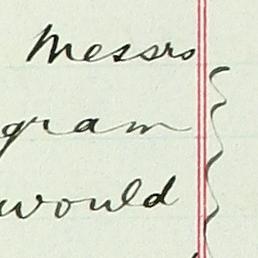 Messrs
gram
would